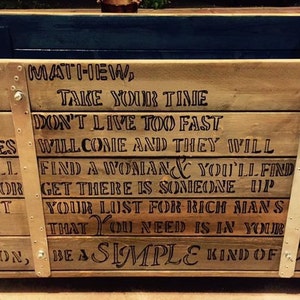 MATHEW,
TAKE YOUR TIME
DON'T LIVE TOO FAST
ES WILL COME AND THEY WILL
LL FIND A WOMAN & YOU'LL FIND
OR GET THERE IS SOMEONE UP
T YOUR LUST FOR RICH MAN'S
THAT YOU NEED IS IN YOUR
ON, BE A SIMPLE KIND OF